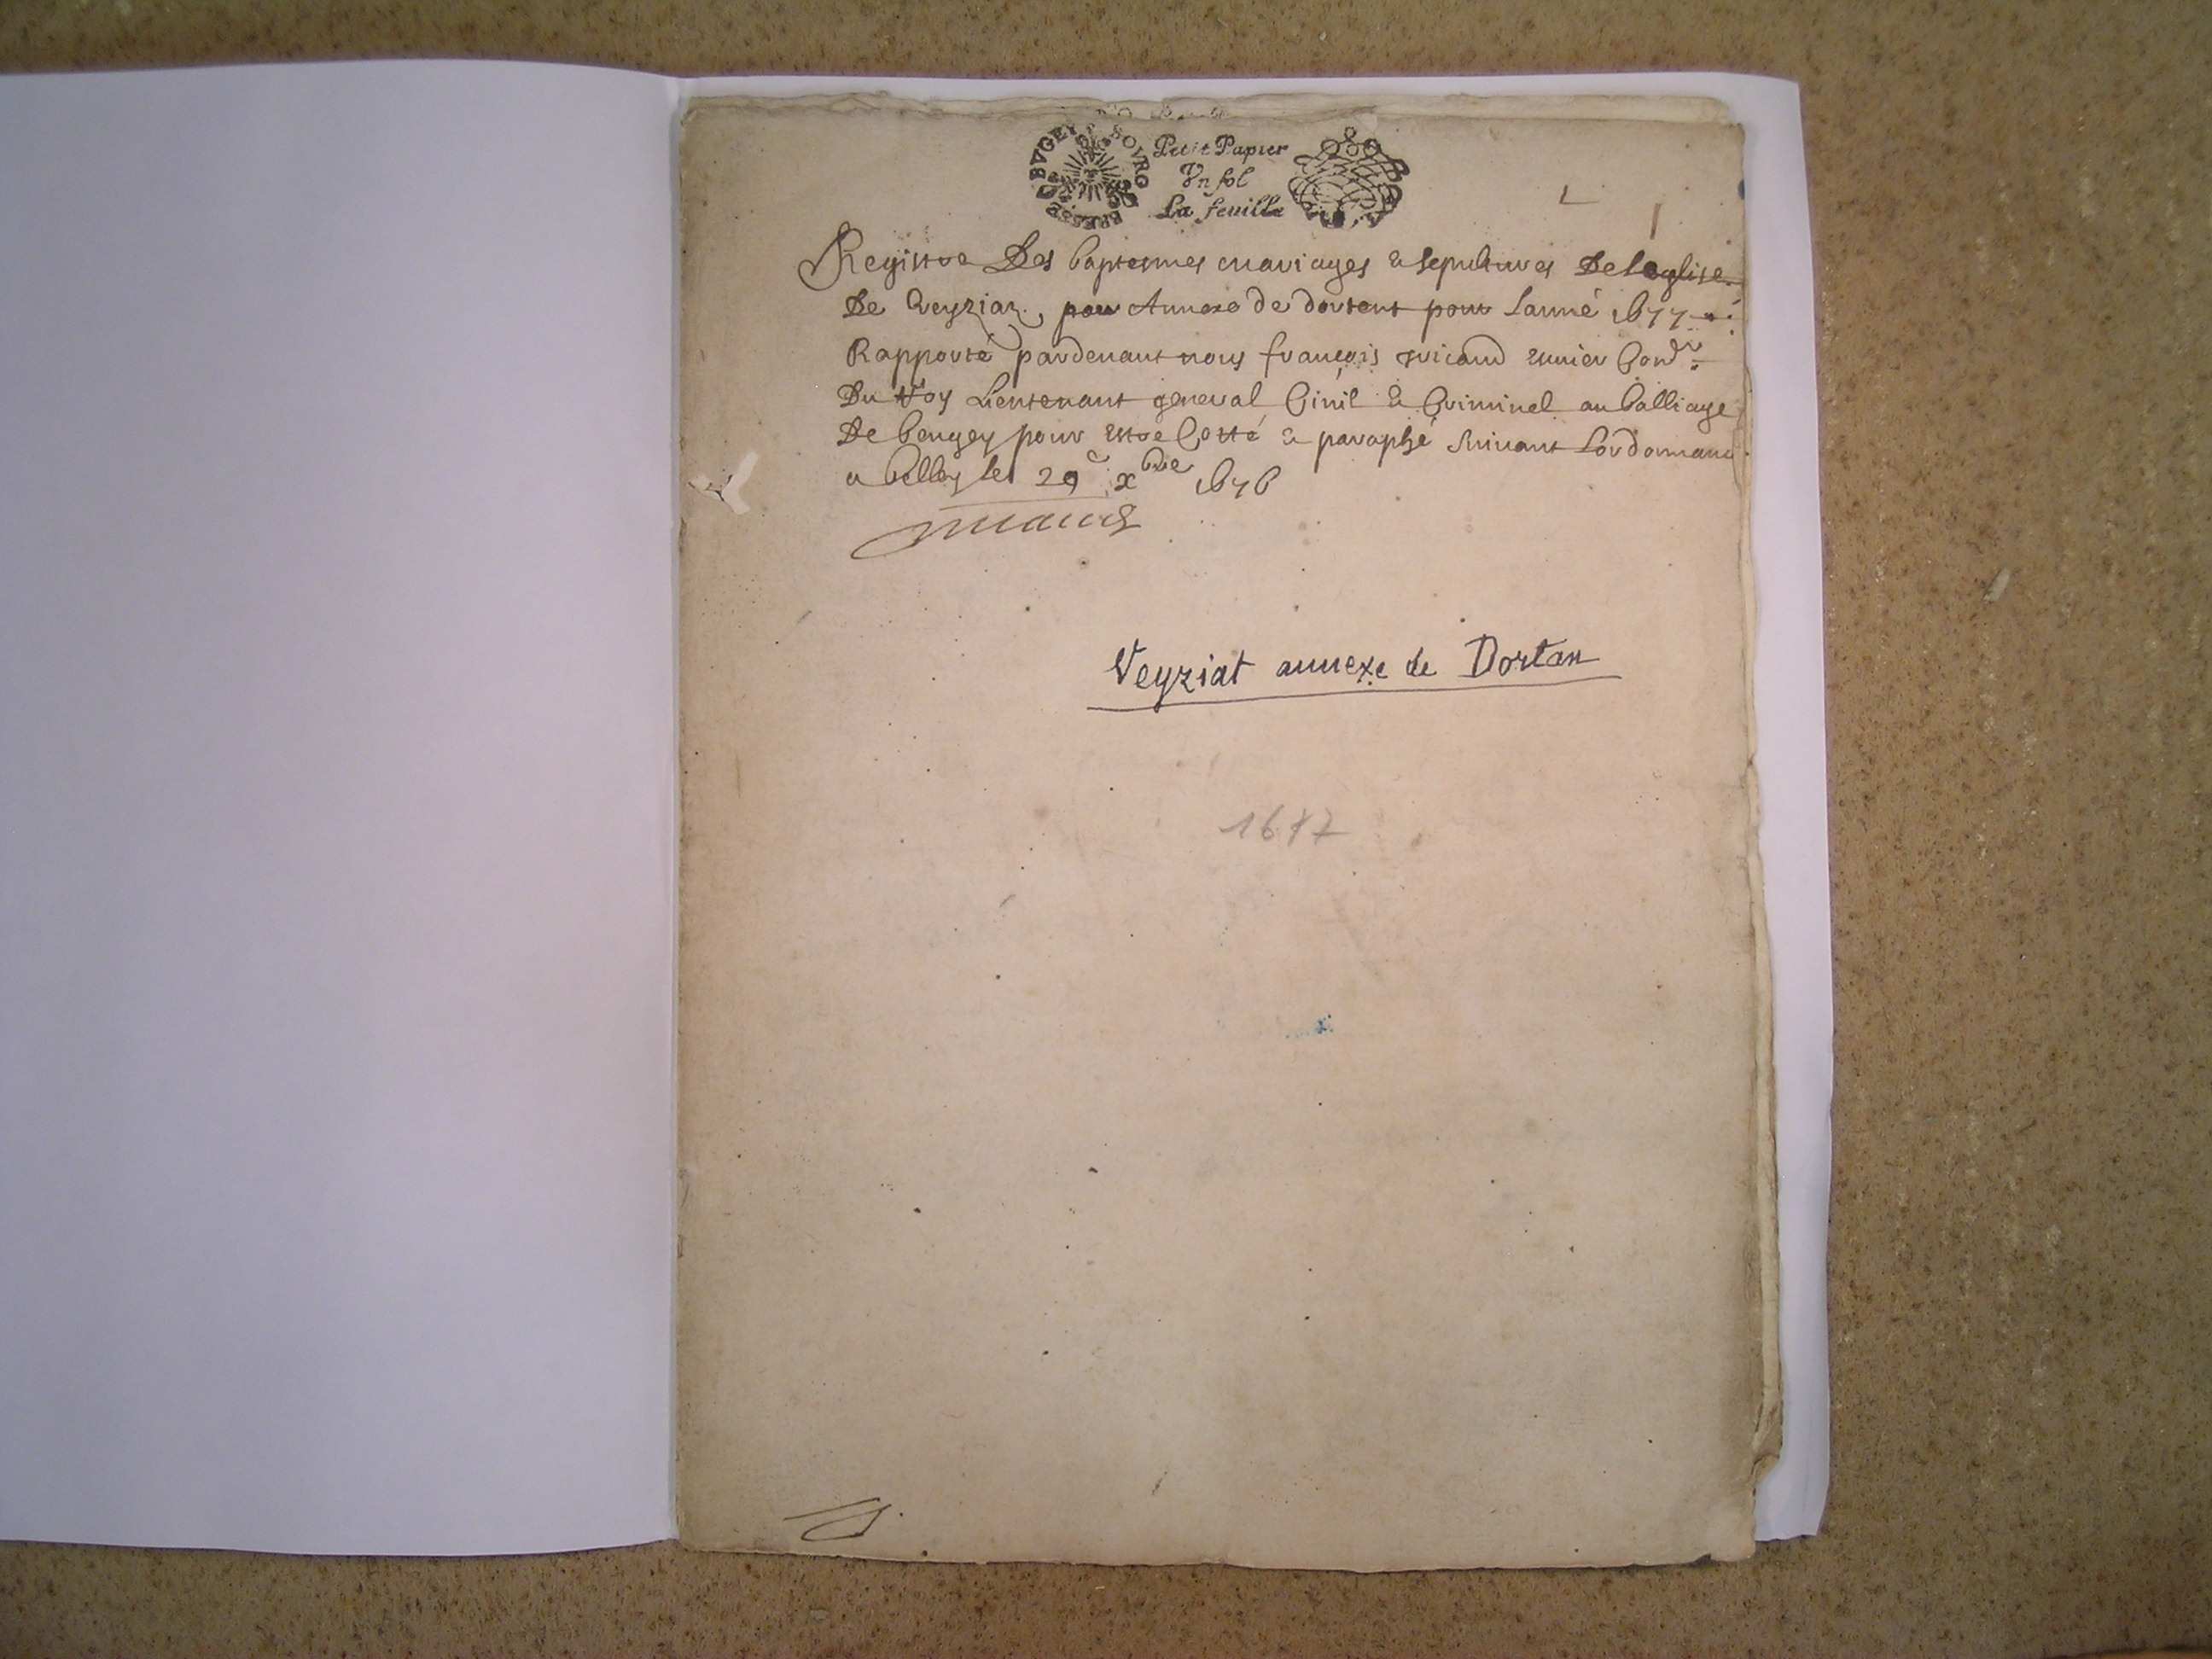 BOVRG BRESSE BVGEY
Petit Papier
Vn sol
La feuille
Registre Des baptesmes mariages & sepultures De leglise
De Veyziaz, pour Annexe de dortent pour lannè 1677
Rapportè pardevant nous françois escuier Con.r
Du Roy Lieutenant general Civil & Criminel au balliage
De beugey pour estre Cottè & paraphè suivant lordonnance
a belley le 29e xbre 1676
Veyziat annexe de Dortan
1677